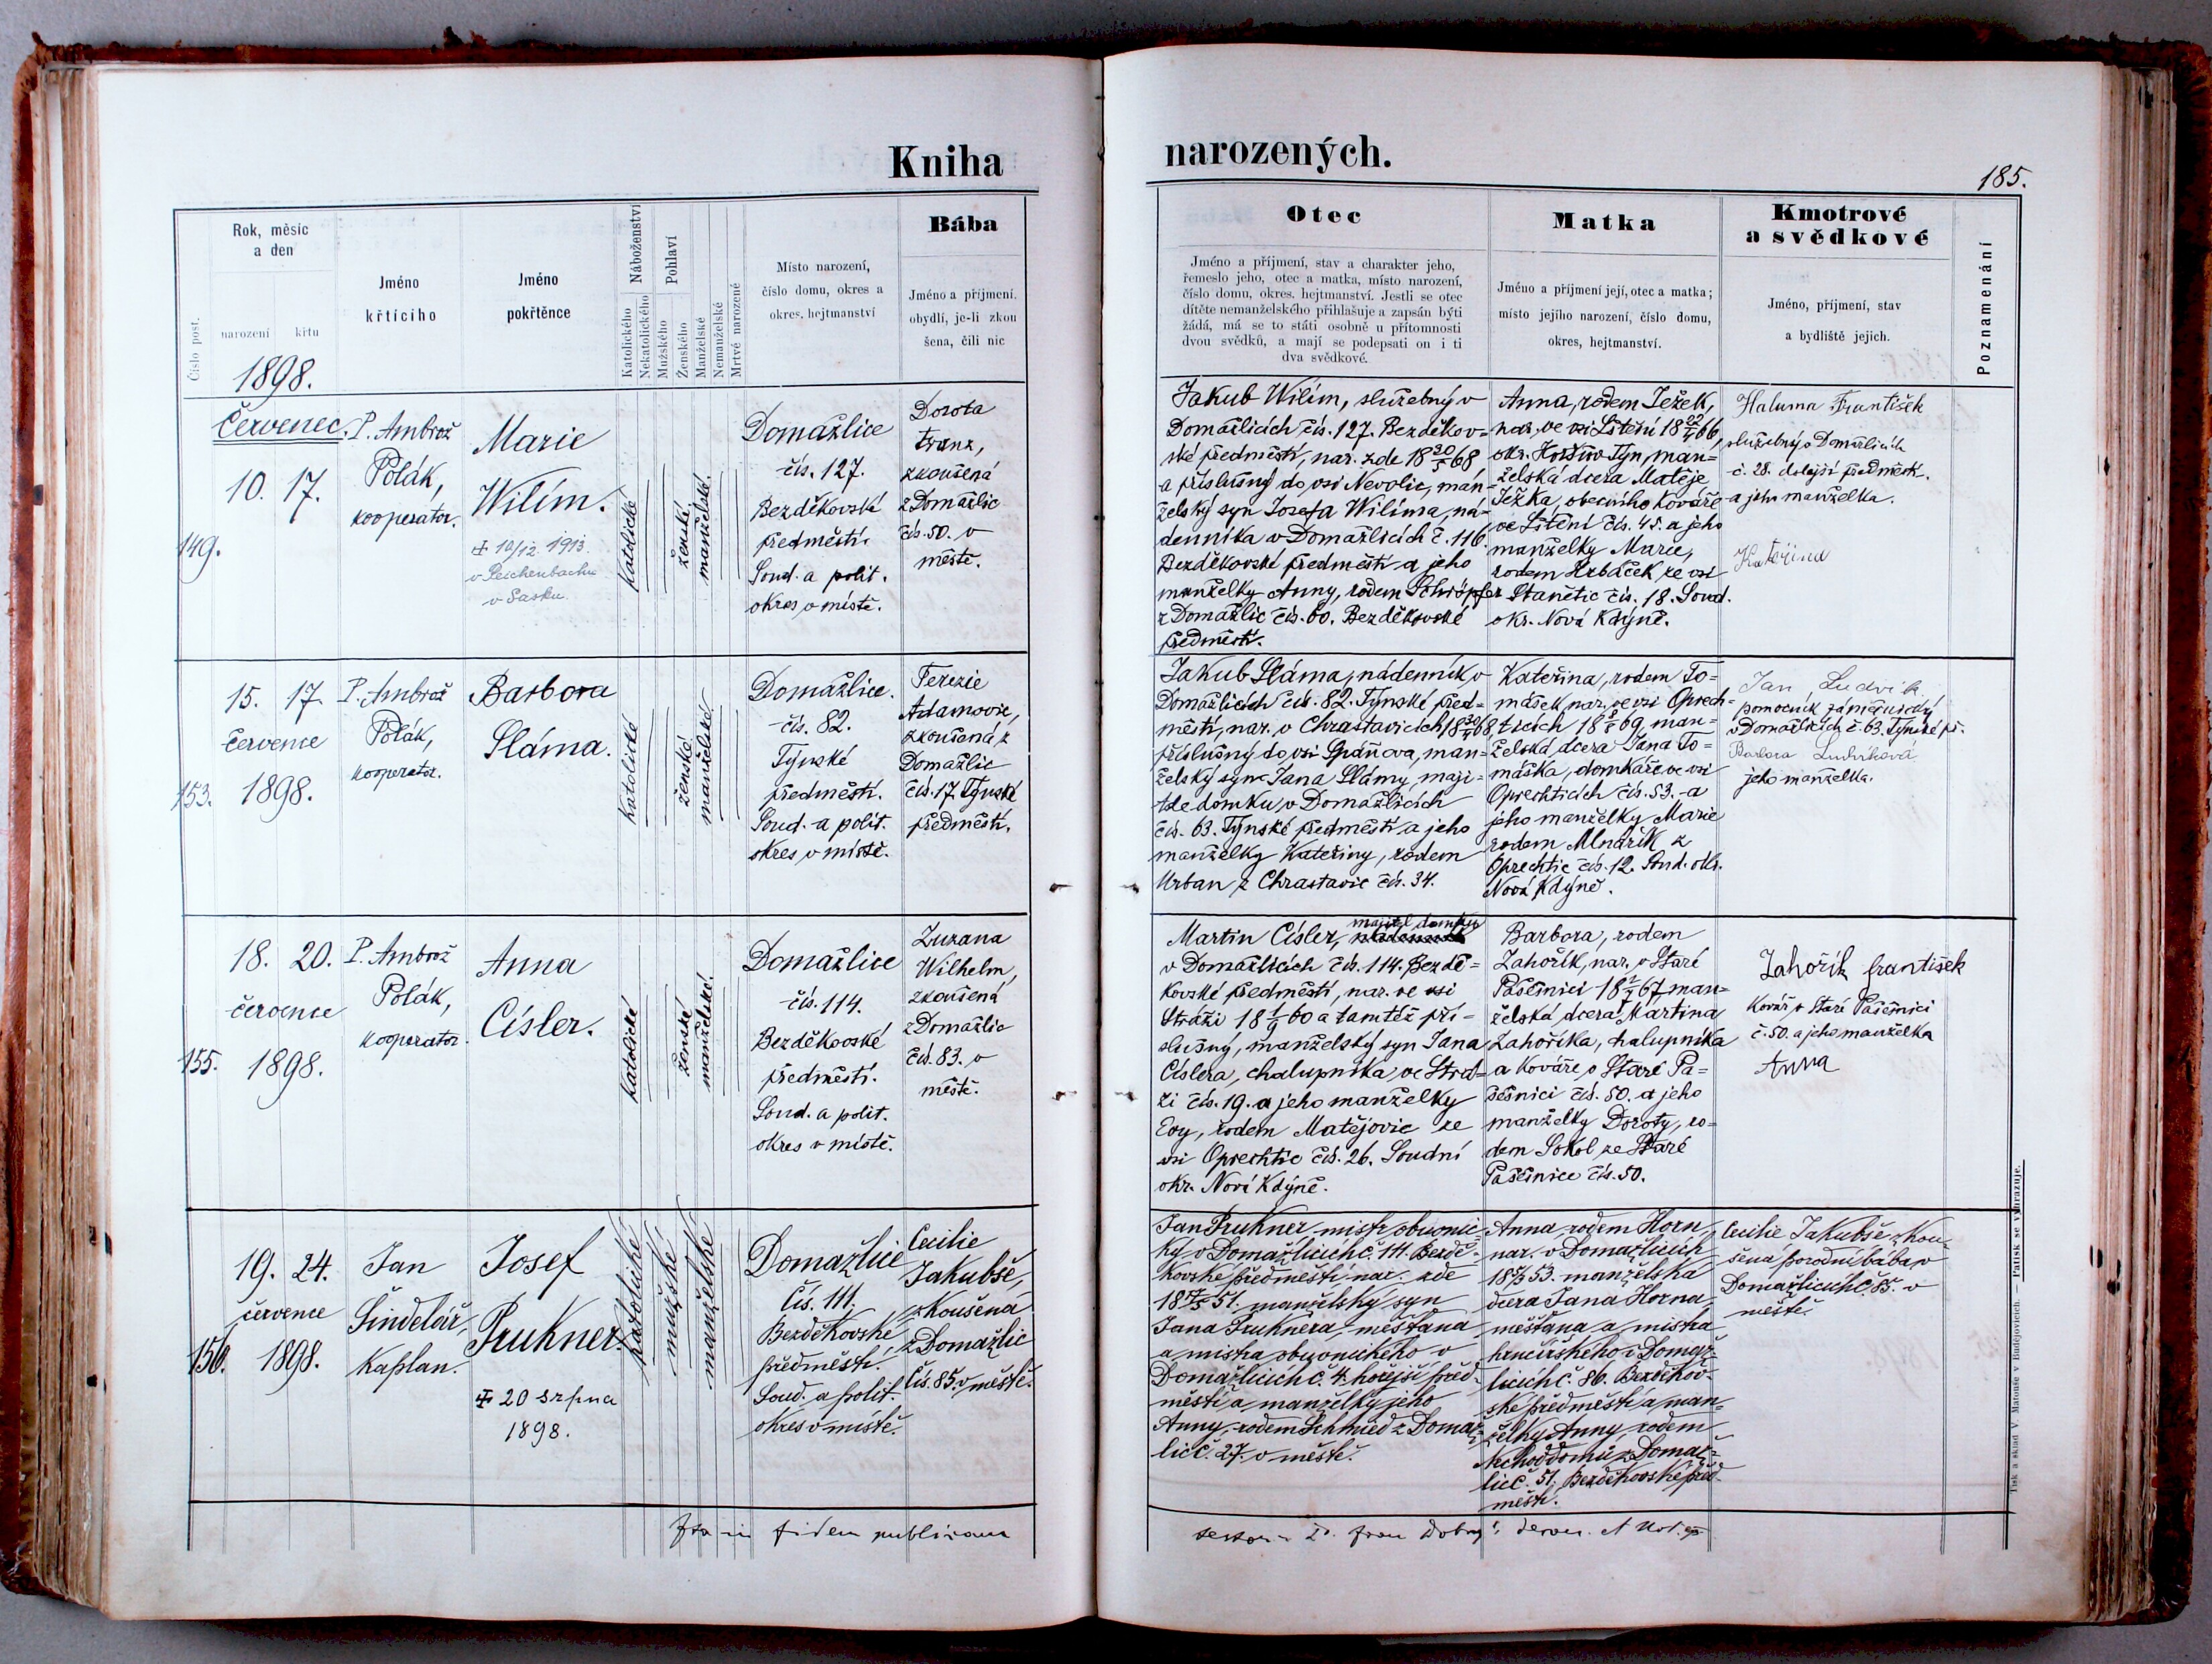 Kniha
narozených.
185.
Číslo post.
Rok, měsíc
a den
narození
křtu
1898.
Jméno
křtícího
Jméno
pokřtěnce
Náboženství
Katolického
Nekatolického
Pohlaví
Mužského
Ženského
Manželské
Nemanželské
Mrtvé narozené
Místo narození,
číslo domu, okres a
okres. hejtmanství
Bába
Jméno a příjmení.
obydlí, je-li zkou
šena, čili nic
Otec
Jméno a příjmení, stav a charakter jeho,
řemeslo jeho, otec a matka, místo narození,
číslo domu, okres. hejtmanství. Jestli se otec
dítěte nemanželského přihlašuje a zapsán býti
žádá, má se to státi osobně u přítomnosti
dvou svědků, a mají se podepsati on i ti
dva svědkové.
Matka
Jméno a příjmení její, otec a matka;
místo jejího narození, číslo domu,
okres, hejtmanství.
Kmotrové
a svědkové
Jméno, příjmení, stav
a bydliště jejich.
Poznamenání
149.
Červenec.
10. 17.
P. Ambrož
Polák,
kooperator.
Marie
Wilím.
✝ 10/12 1913.
v Reichenbachu
v Sasku.
katolické
ženské
manželské.
Domažlice
čís. 127.
Bezděkovské
předměstí.
Soud. a polit.
okres v místě.
Dorota
Franz,
zkoušená
z Domažlic
čís. 50. v
městě.
Jakub Wilím, služebný v
Domažlicích čís. 127. Bezděkov=
ské předměstí, nar. zde 18 20/5 68
a příslušný do vsi Nevolic, man=
želský syn Josefa Wilíma, ná=
denníka v Domažlicích č. 116.
Bezděkovské předměstí a jeho
manželky Anny, rodem Schröpfer
z Domažlic čís. 60. Bezděkovské
předměstí.
Anna, rodem Ježek,
nar. ve vsi Štění 18 22/4 66,
okr. Horšův Týn, man=
želská dcera Matěje
Ježka, obecního kováře
ve Štění čís. 45. a jeho
manželky Marie,
rodem Hrbáček ze vsi
Stanětic čís. 18. Soud.
okr. Nová Kdýně.
Haluma František
služebný v Domažlicích
č. 28. dolejší předměst.
a jeho manželka.
Kateřina
153.
15. 17.
července
1898.
P. Ambrož
Polák,
kooperator.
Barbora
Sláma.
katolické
ženské
manželské
Domažlice.
čís. 82.
Týnské
předměstí.
Soud. a polit.
okres v místě.
Terezie
Adamovic,
zkoušená z
Domažlic
čís. 17. Týnské
předměstí.
Jakub Sláma, nádenník v
Domažlicích čís. 82. Týnské před=
městí, nar. v Chrastavicích 18 30/4 68,
příslušný do vsi Spáňova, man=
želský syn Jana Slámy, maji=
tele domku v Domažlicích
čís. 63. Týnské předměstí a jeho
manželky Kateřiny, rodem
Urban z Chrastavic čís. 34.
Kateřina, rodem To=
mášek, nar. ve vsi Oprech=
ticích 18 8/5 69, man=
želská dcera Jana To=
máška, domkáře ve vsi
Oprechticích čís. 53. a
jeho manželky Marie
rodem Mlnařík z
Oprechtic čís. 12. Soud. okr.
Nová Kdýně.
Jan Ludvík
pomocník zámečnický
v Domažlicích č. 63. Týnské př.
Barbora Ludvíková
jeho manželka.
155.
18. 20.
července
1898.
P. Ambrož
Polák,
kooperator.
Anna
Císler.
katolické
ženské
manželské.
Domažlice
čís. 114.
Bezděkovské
předměstí.
Soud. a polit.
okres v místě.
Zuzana
Wilhelm,
zkoušená
z Domažlic
čís. 83. v
městě.
majitel domku
Martin Císler, nádenník
v Domažlicích čís. 114. Bezdě=
kovské předměstí, nar. ve vsi
Stráži 18 1/9 60 a tamtéž pří=
slušný, manželský syn Jana
Císlera, chalupníka ve Strá=
ži čís. 19. a jeho manželky
Evy, rodem Matějovic ze
vsi Oprechtic čís. 26. Soudní
okr. Nová Kdýně.
Barbora, rodem
Zahořík, nar. v Staré
Pasečnici 18 1/7 67, man=
želská dcera Martina
Zahoříka, chalupníka
a kováře v Staré Pa=
sečnici čís. 50. a jeho
manželky Doroty, ro=
dem Sokol ze Staré
Pasečnice čís. 50.
Zahořík František
Kovář v Staré Pasečnici
č. 50. a jeho manželka
Anna
156.
19. 24.
července
1898.
Jan
Šindelář,
kaplan.
Josef
Prukner.
✝ 20 srpna
1898.
katolické
mužské
manželské
Domažlice
Čís. 111.
Bezděkovské
předměstí.
Soud. a polit.
okres v místě.
Cecilie
Jakubše,
zkoušená
z Domažlic
čís. 85. v městě.
Jan Prukner mistr obuvnic=
ký v Domažlicích č. 111. Bezdě=
kovské předměstí, nar. zde
51. manželský syn
Jana Pruknera, měšťana
a mistra obuvnického v
Domažlicích č. 4. hořejší před=
městí a manželky jeho
Anny, rodem Schmied z Domaž=
lic č. 27. v městě.
Anna, rodem Horn,
nar. v Domažlicích
53. manželská
dcera Jana Horna,
měšťana a mistra
hrnčířského v Domaž=
licích č. 86. Bezděkov=
ské předměstí a man=
želky Anny, rodem
Nechoddomů z Domaž=
lic č. 51. Bezděkovské před=
městí.
Cecilie Jakubše, zkou=
šená porodní bába v
Domažlicích č. 85. v
městě.
in fidem publicam
Tisk a sklad V. Matouše v Budějovicích. — Patisk se vyhrazuje.